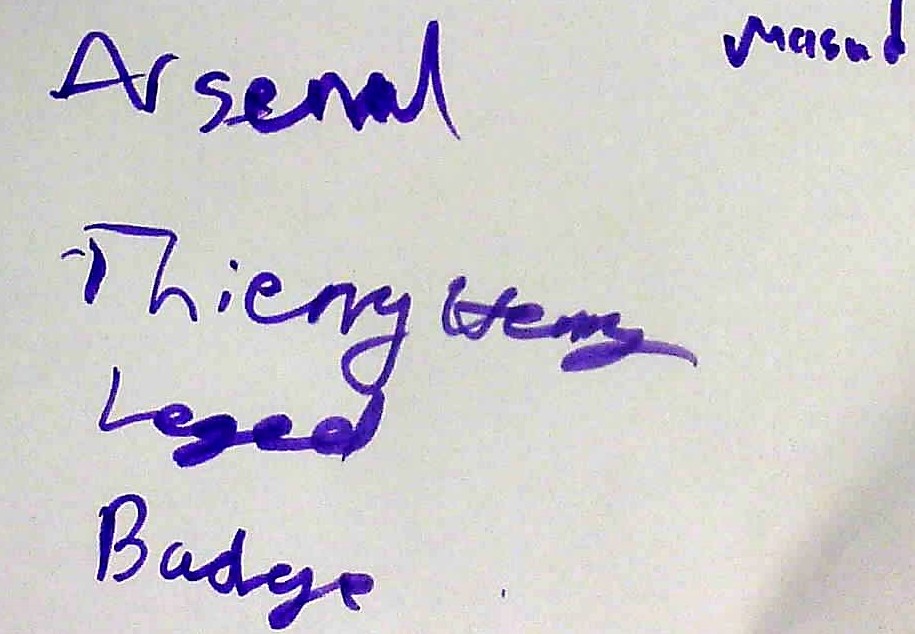 Arsenal
Masud
Thierry Henry
Legend
Badge